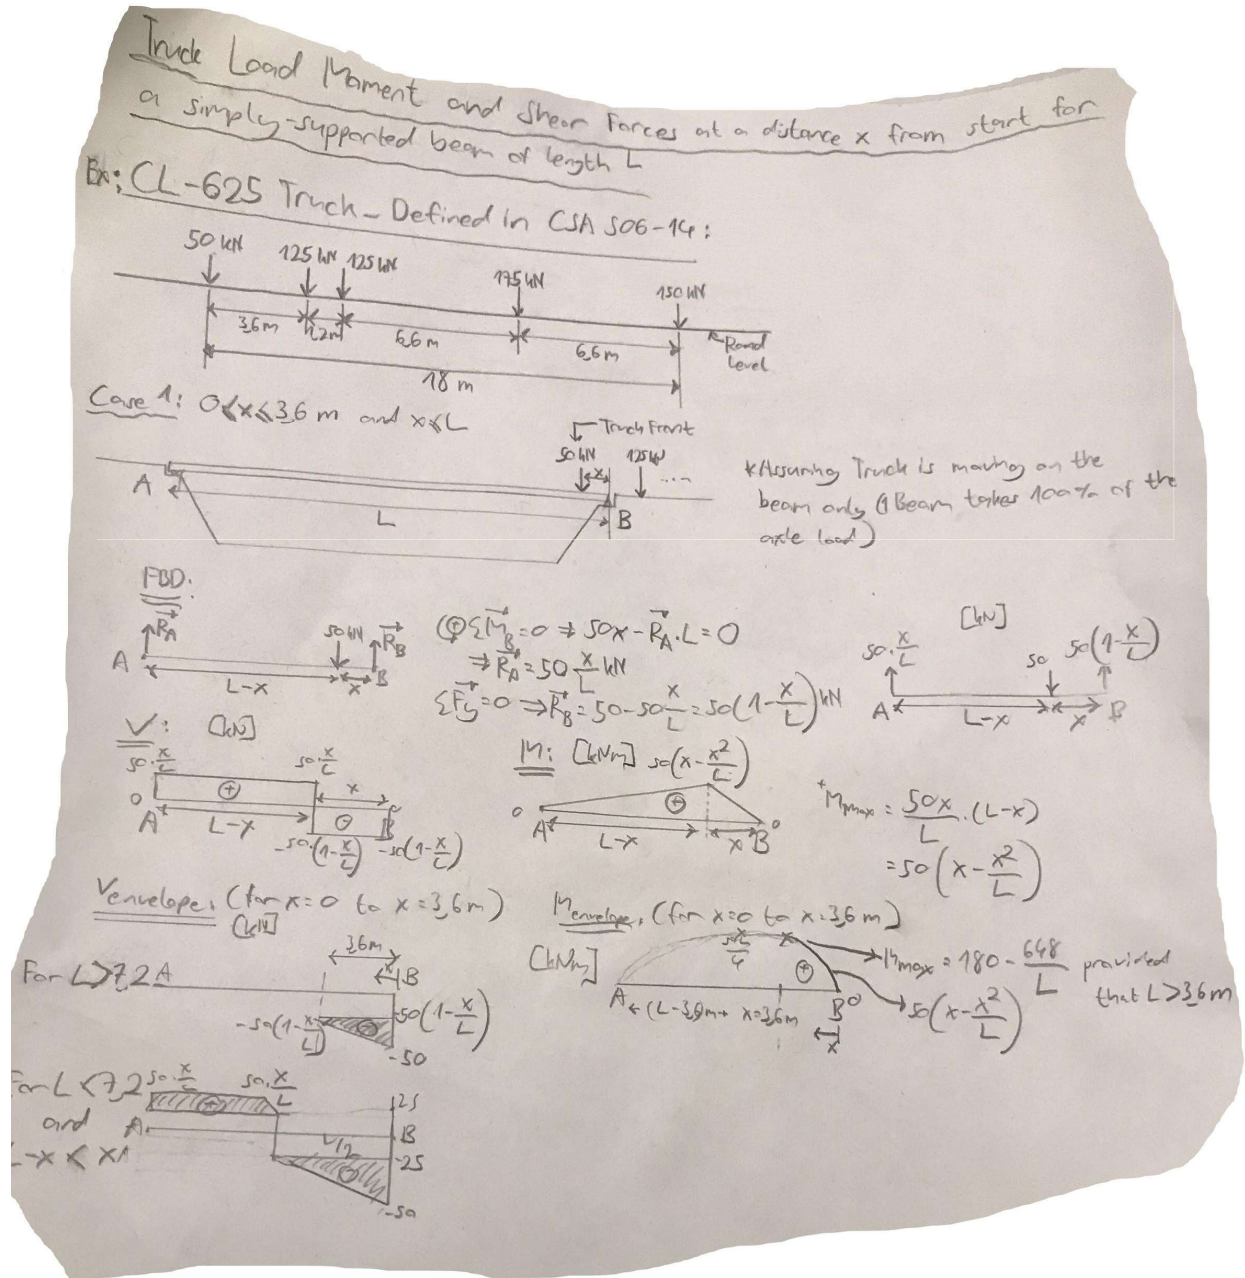 Truck Load Moment and Shear Forces at a distance x from start for
a simply-supported beam of length L
Ex: CL-625 Truck - Defined in CSA S06-14:
50 kN 125 kN 125 kN 175 kN 150 kN
3,6m 1,2m 6,6m 6,6m
Road
Level
18 m
Case 1: 0≤x≤3,6 m and x≤L
Truck Front
50 kN 125 kN ...
x
A L B
*Assuming Truck is moving on the
beam only (1 Beam takes 100% of the
axle load)
FBD:
R_A 50 kN R_B
A L-x x B
⊕ΣM_B=0 ⇒ 50x-R_A.L=0
⇒ R_A=50 x/L kN
ΣFy=0 ⇒ R_B=50-50 x/L=50(1-x/L) kN
[kN]
50.x/L 50 50(1-x/L)
A L-x x B
V: [kN]
50.x/L 50.x/L
0 ⊕ x
A L-x ⊖ B
-50.(1-x/L) -50(1-x/L)
M: [kNm] 50(x-x²/L)
0 ⊕ 0
A L-x x B
+Mmax = 50x/L .(L-x)
=50(x-x²/L)
Venvelope, (for x=0 to x=3,6m)
[kN]
3,6m
For L>7,2 A x B
-50(1-x/L) ⊖ -50(1-x/L)
-50
For L<7,2 50.x/L 50.x/L
and
L-x < x
⊕ 25
A B
L/2 -25
⊖
-50
Menvelope, (for x=0 to x=3,6m)
[kNm]
⊕
Mmax = 180 - 648/L provided
that L>3,6m
50(x-x²/L)
A x=3,6m B 0
x